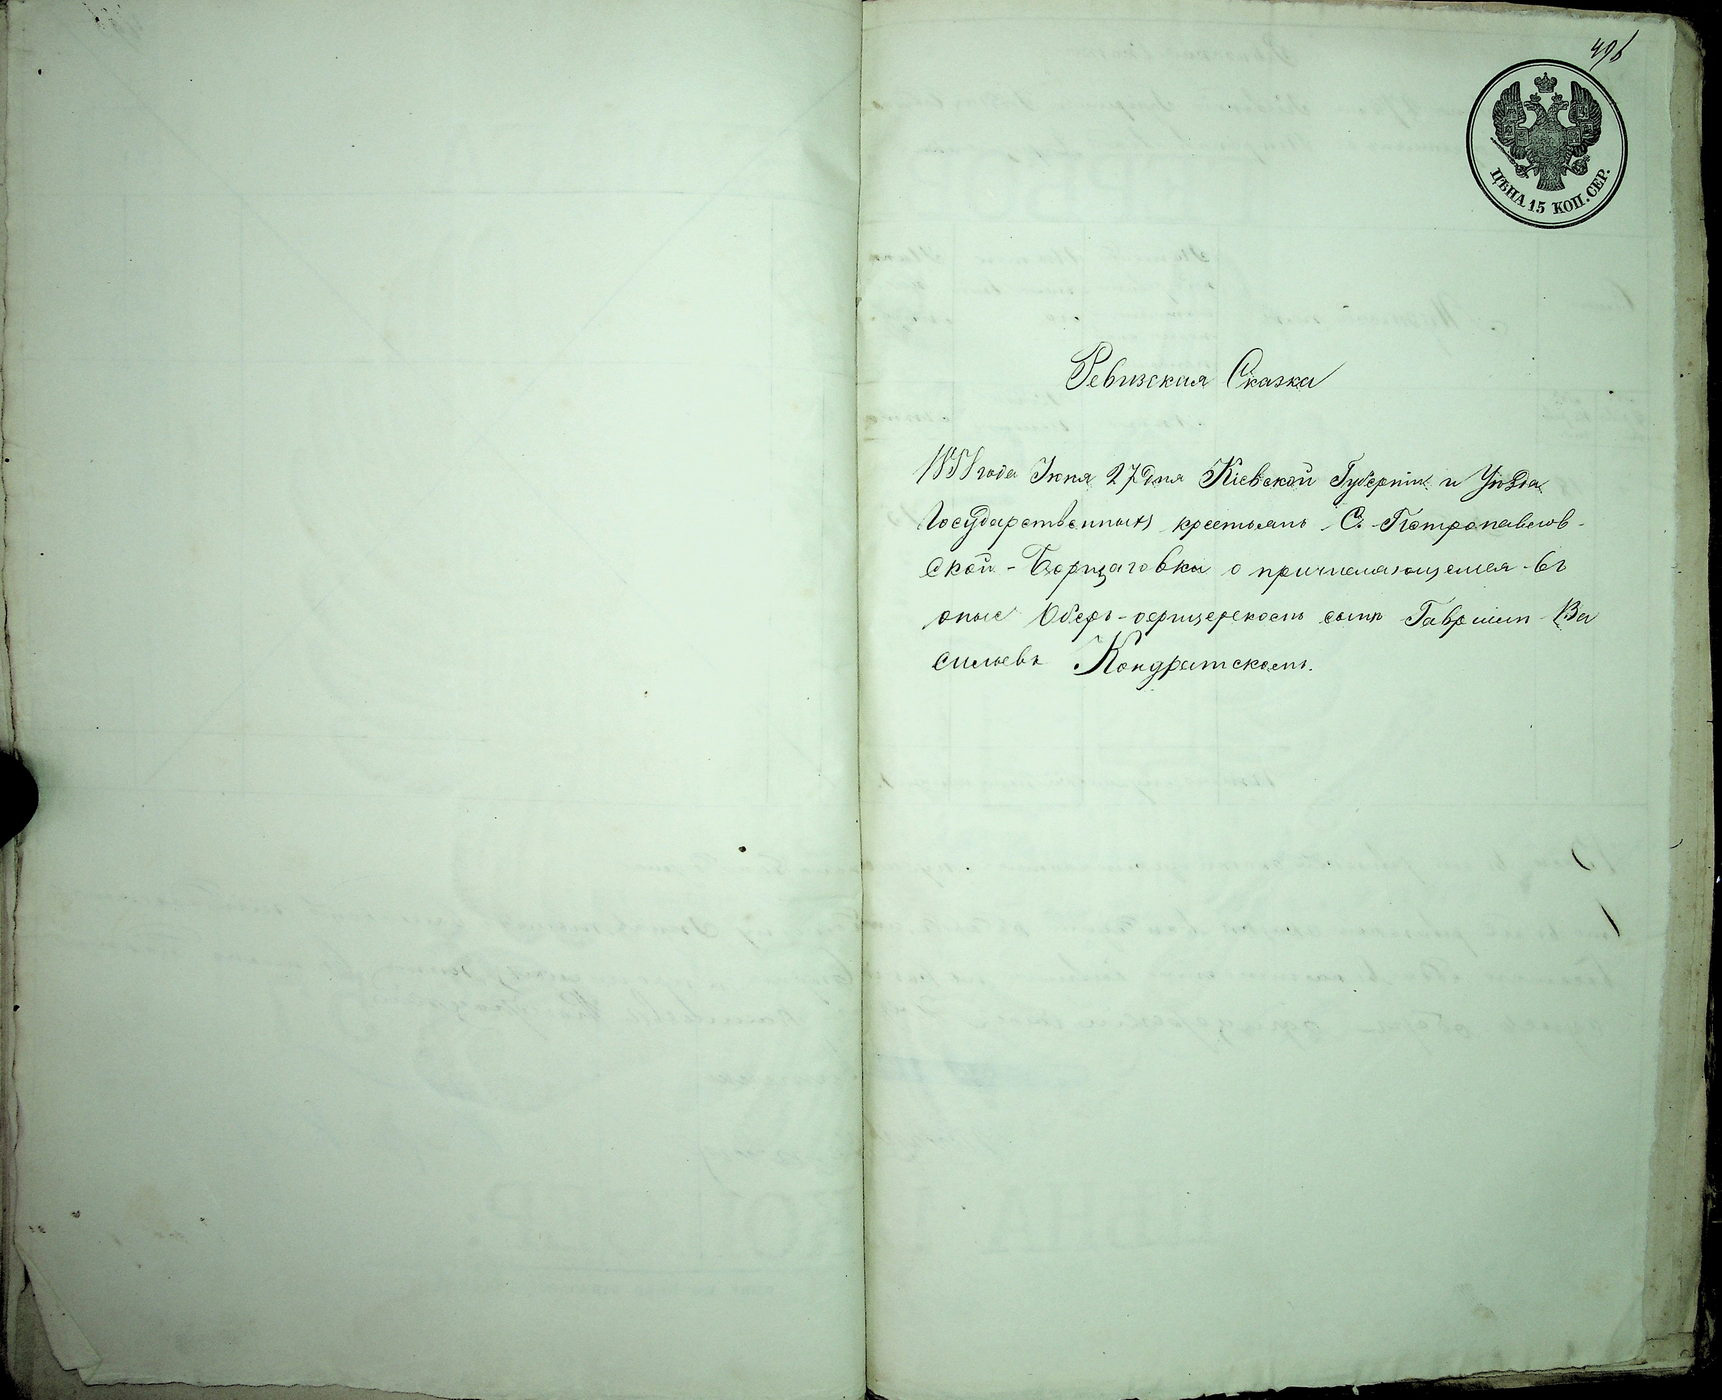 496
ЦѢНА 15 КОП. СЕР.
Ревизская Сказка
1858 года Іюня 27 дня Кіевской Губерніи и Уѣзда
Государственныхъ крестьянъ С. Петропавлов-
ской-Борщаговки о причисляющемся въ
оные Оберъ-офицерскомъ сынѣ Гавриилѣ Ва
сильевѣ Кондратскомъ.